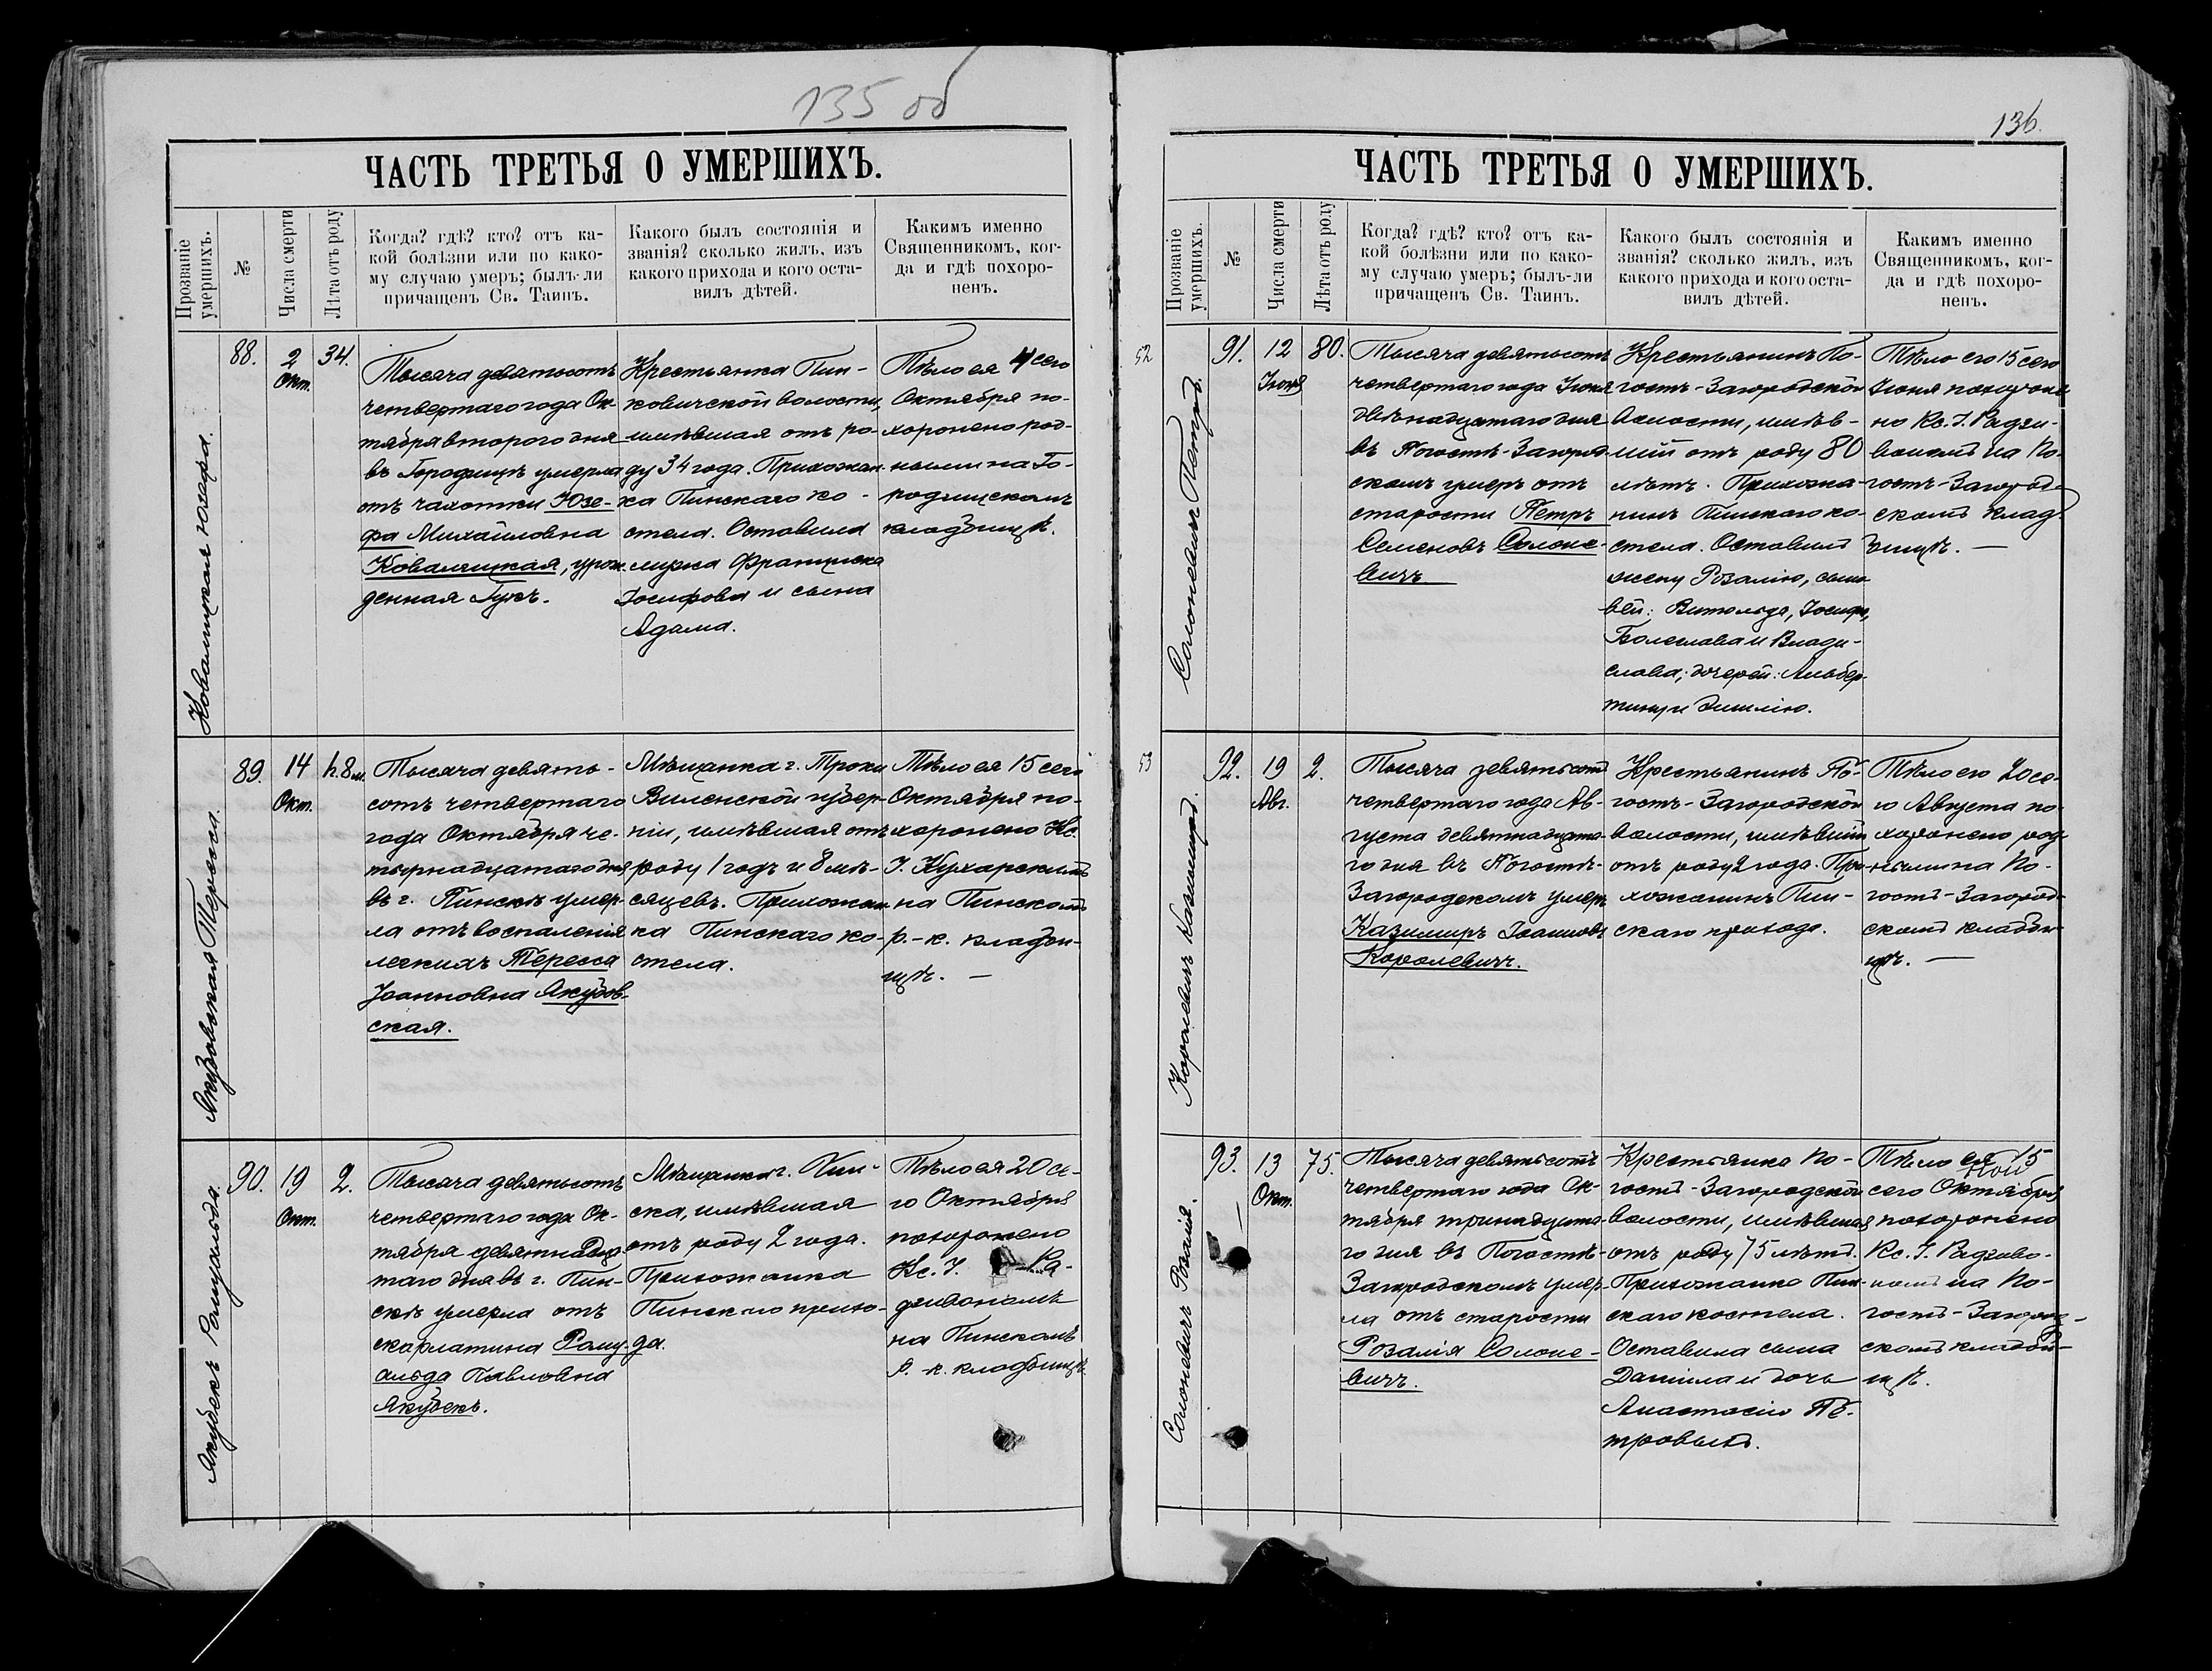 135 об
ЧАСТЬ ТРЕТЬЯ О УМЕРШИХЪ.
Прозваніе умершихъ.
№
Числа смерти
Лѣта отъ роду
Когда? гдѣ? кто? отъ ка-
кой болѣзни или по како-
му случаю умеръ; былъ-ли
причащенъ Св. Таинъ.
Какого былъ состоянія и
званія? сколько жилъ, изъ
какого прихода и кого оста-
вилъ дѣтей.
Какимъ именно
Священникомъ, ког-
да и гдѣ похоро-
ненъ.
Ковалицкая Юзефа.
88.
2
Окт.
34.
Тысяча девятьсотъ
четвертаго года Ок-
тября второго дня
въ Городищѣ умерла
отъ чахотки Юзе-
фа Михайловна
Ковалицкая, урож-
денная Гукъ.
Крестьянка Пин-
ковичской волости,
имѣвшая отъ ро-
ду 34 года. Прихожан-
ка Пинскаго ко-
стела. Оставила
мужа Франциска
Іосифова и сына
Адама.
Тѣло ея 4 сего
Октября по-
хоронено род-
ными на Го-
родищскомъ
кладбищѣ.
Якубовская Тересса.
89.
14
Окт.
1г. 8м.
Тысяча девять-
сотъ четвертаго
года Октября че-
тырнадцатаго дня
въ г. Пинскѣ умер-
ла отъ воспаленія
легкихъ Тересса
Іоанновна Якубов-
ская.
Мѣщанка г. Троки
Виленской губер-
ніи, имѣвшая отъ
роду 1 годъ и 8 мѣ-
сяцевъ. Прихожан-
ка Пинскаго ко-
стела.
Тѣло ея 15 сего
Октября по-
хоронено Кс.
І. Кухарскимъ
на Пинскомъ
р.-к. кладби-
щѣ. —
Якубекъ Ромуальда.
90.
19
Окт.
2.
Тысяча девятьсотъ
четвертаго года Ок-
тября девятнадца-
таго дня въ г. Пин-
скѣ умерла отъ
скарлатина Рому-
альда Павловна
Якубекъ.
Мѣщанка г. Пин-
ска, имѣвшая
отъ роду 2 года.
Прихожанка
Пинскаго прихо-
да.
Тѣло ея 20 се-
го Октября
похоронено
Кс. І. Ра-
дзивономъ
на Пинскомъ
р.-к. кладбищѣ.
136.
ЧАСТЬ ТРЕТЬЯ О УМЕРШИХЪ.
Прозваніе умершихъ.
№
Числа смерти
Лѣта отъ роду
Когда? гдѣ? кто? отъ ка-
кой болѣзни или по како-
му случаю умеръ; былъ-ли
причащенъ Св. Таинъ.
Какого былъ состоянія и
званія? сколько жилъ, изъ
какого прихода и кого оста-
вилъ дѣтей.
Какимъ именно
Священникомъ, ког-
да и гдѣ похоро-
ненъ.
52
Солоневичъ Петръ.
91.
12
Іюня
80.
Тысяча девятьсотъ
четвертаго года Іюня
двѣнадцатаго дня
въ Погостѣ-Загород-
скомъ умеръ отъ
старости Петръ
Семеновъ Солоне-
вичъ
Крестьянинъ По-
гостъ-Загородской
волости, имѣв-
шій отъ роду 80
лѣтъ. Прихожа-
нинъ Пинскаго ко-
стела. Оставилъ
жену Розалію, сыно-
вей: Витольда, Іосифа,
Болеслава и Влади-
слава; дочерей: Альбер-
тину и Эмилію.
Тѣло его 15 сего
Іюня похороне-
но Кс. І. Радзи-
вономъ на По-
гостъ-Загород-
скомъ клад-
бищѣ. —
53
Королевичъ Казимиръ.
92.
19
Авг.
2.
Тысяча девятьсотъ
четвертаго года Ав-
густа девятнадцата-
го дня въ Погостѣ-
Загородскомъ умеръ
Казимиръ Іоанновъ
Королевичъ.
Крестьянинъ По-
гостъ-Загородской
волости, имѣвшій
отъ роду 2 года. При-
хожанинъ Пин-
скаго прихода.
Тѣло его 20 се-
го Августа по-
хоронено род-
ными на По-
гостъ-Загород-
скомъ кладби-
щѣ. —
Солоневичъ Розалія.
93.
13
Окт.
75.
Тысяча девятьсотъ
четвертаго года Ок-
тября тринадцата-
го дня въ Погостѣ-
Загородскомъ умер-
ла отъ старости
Розалія Солоне-
вичъ.
Крестьянка По-
гостъ-Загородской
волости, имѣвшая
отъ роду 75 лѣтъ.
Прихожанка Пин-
скаго костела.
Оставила сына
Даніила и дочь
Анастасію Пе-
тровыхъ.
Тѣло ея 15
сего Октября
похоронено
Кс. І. Радзиво-
номъ на По-
гостъ-Загород-
скомъ кладби-
щѣ.